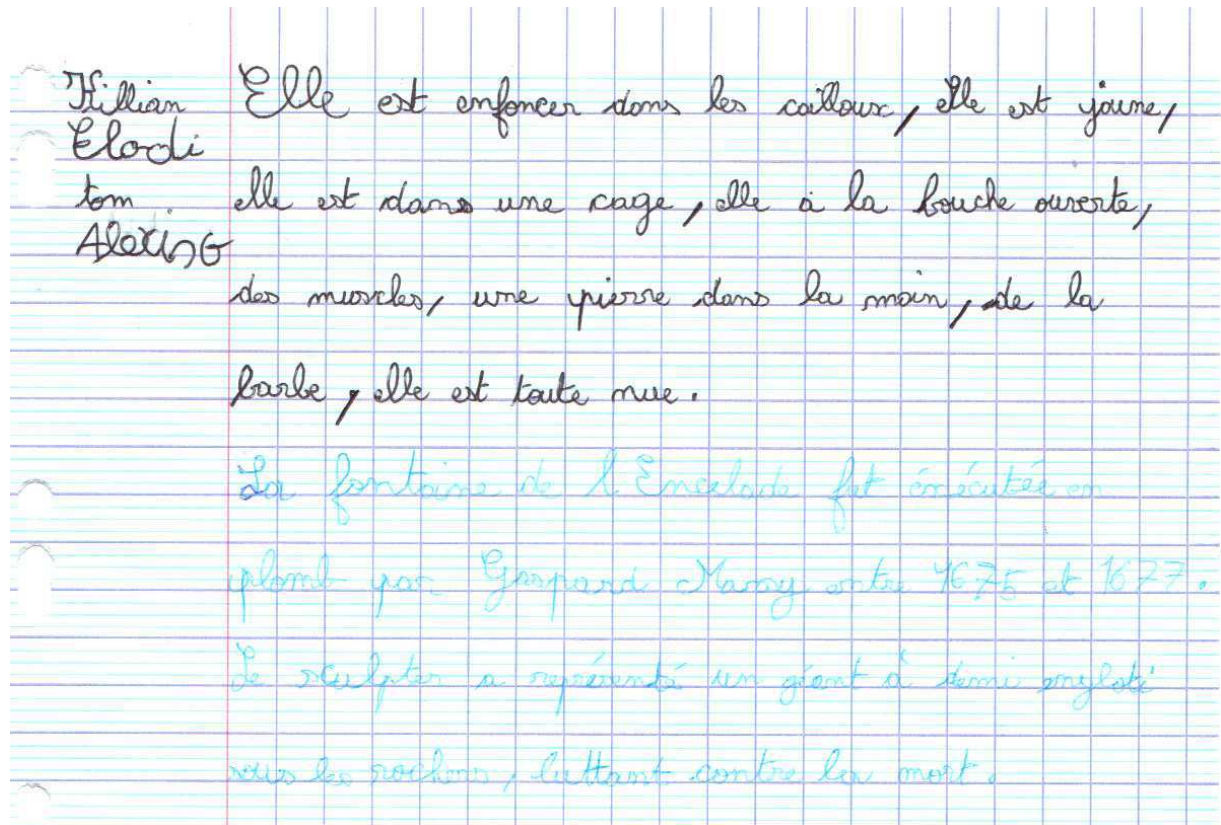 Killian
Elodi
tom
Alexis G
Elle est enfoncer dans les cailloux, elle est jaune,
elle est dans une cage, elle à la bouche ouverte,
des muscles, une pierre dans la main, de la
barbe, elle est toute nue.
La fontaine de l'Encelade fut exécutée en
plomb par Gaspard Marsy entre 1675 et 1677.
Le sculpter a représenté un géant à demi englouti
sous les rochers, luttant contre la mort.